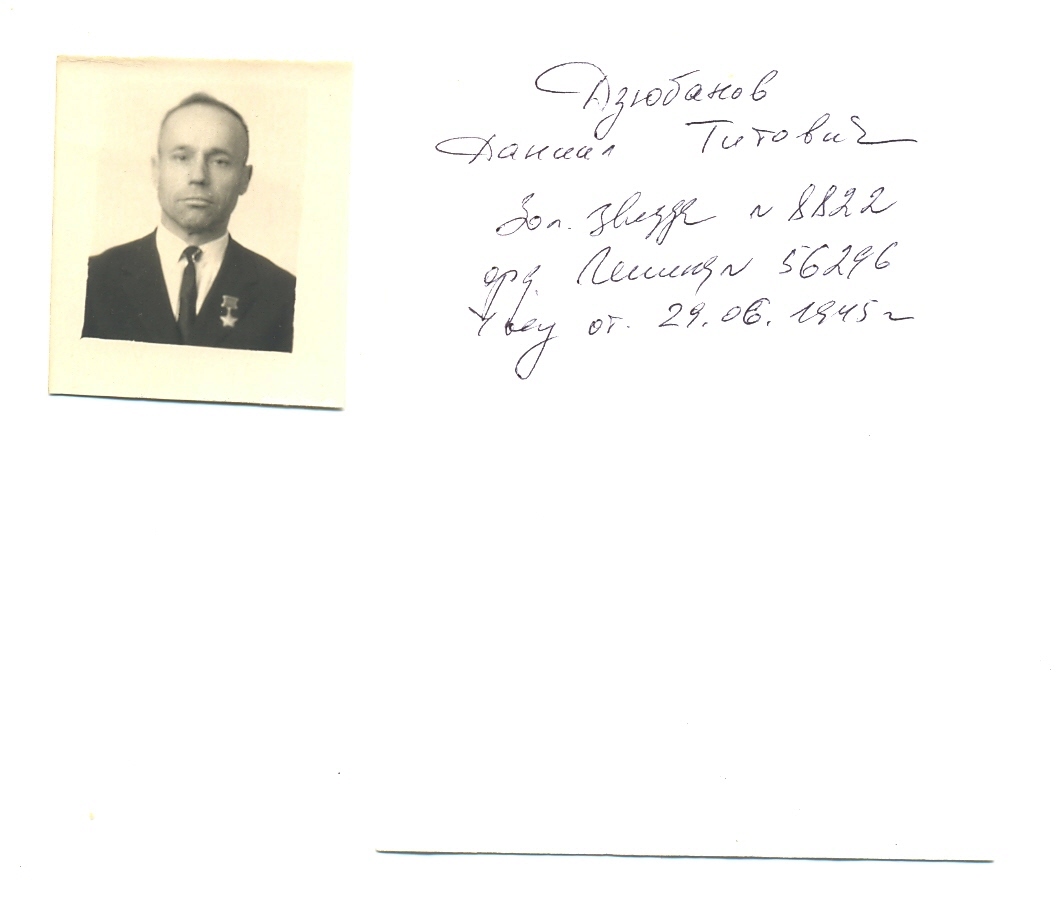 Дзюбанов
Даниил Титович
Зол. Звезда № 8822
орд. Ленина № 56296
Указ от. 29.06.1945 г